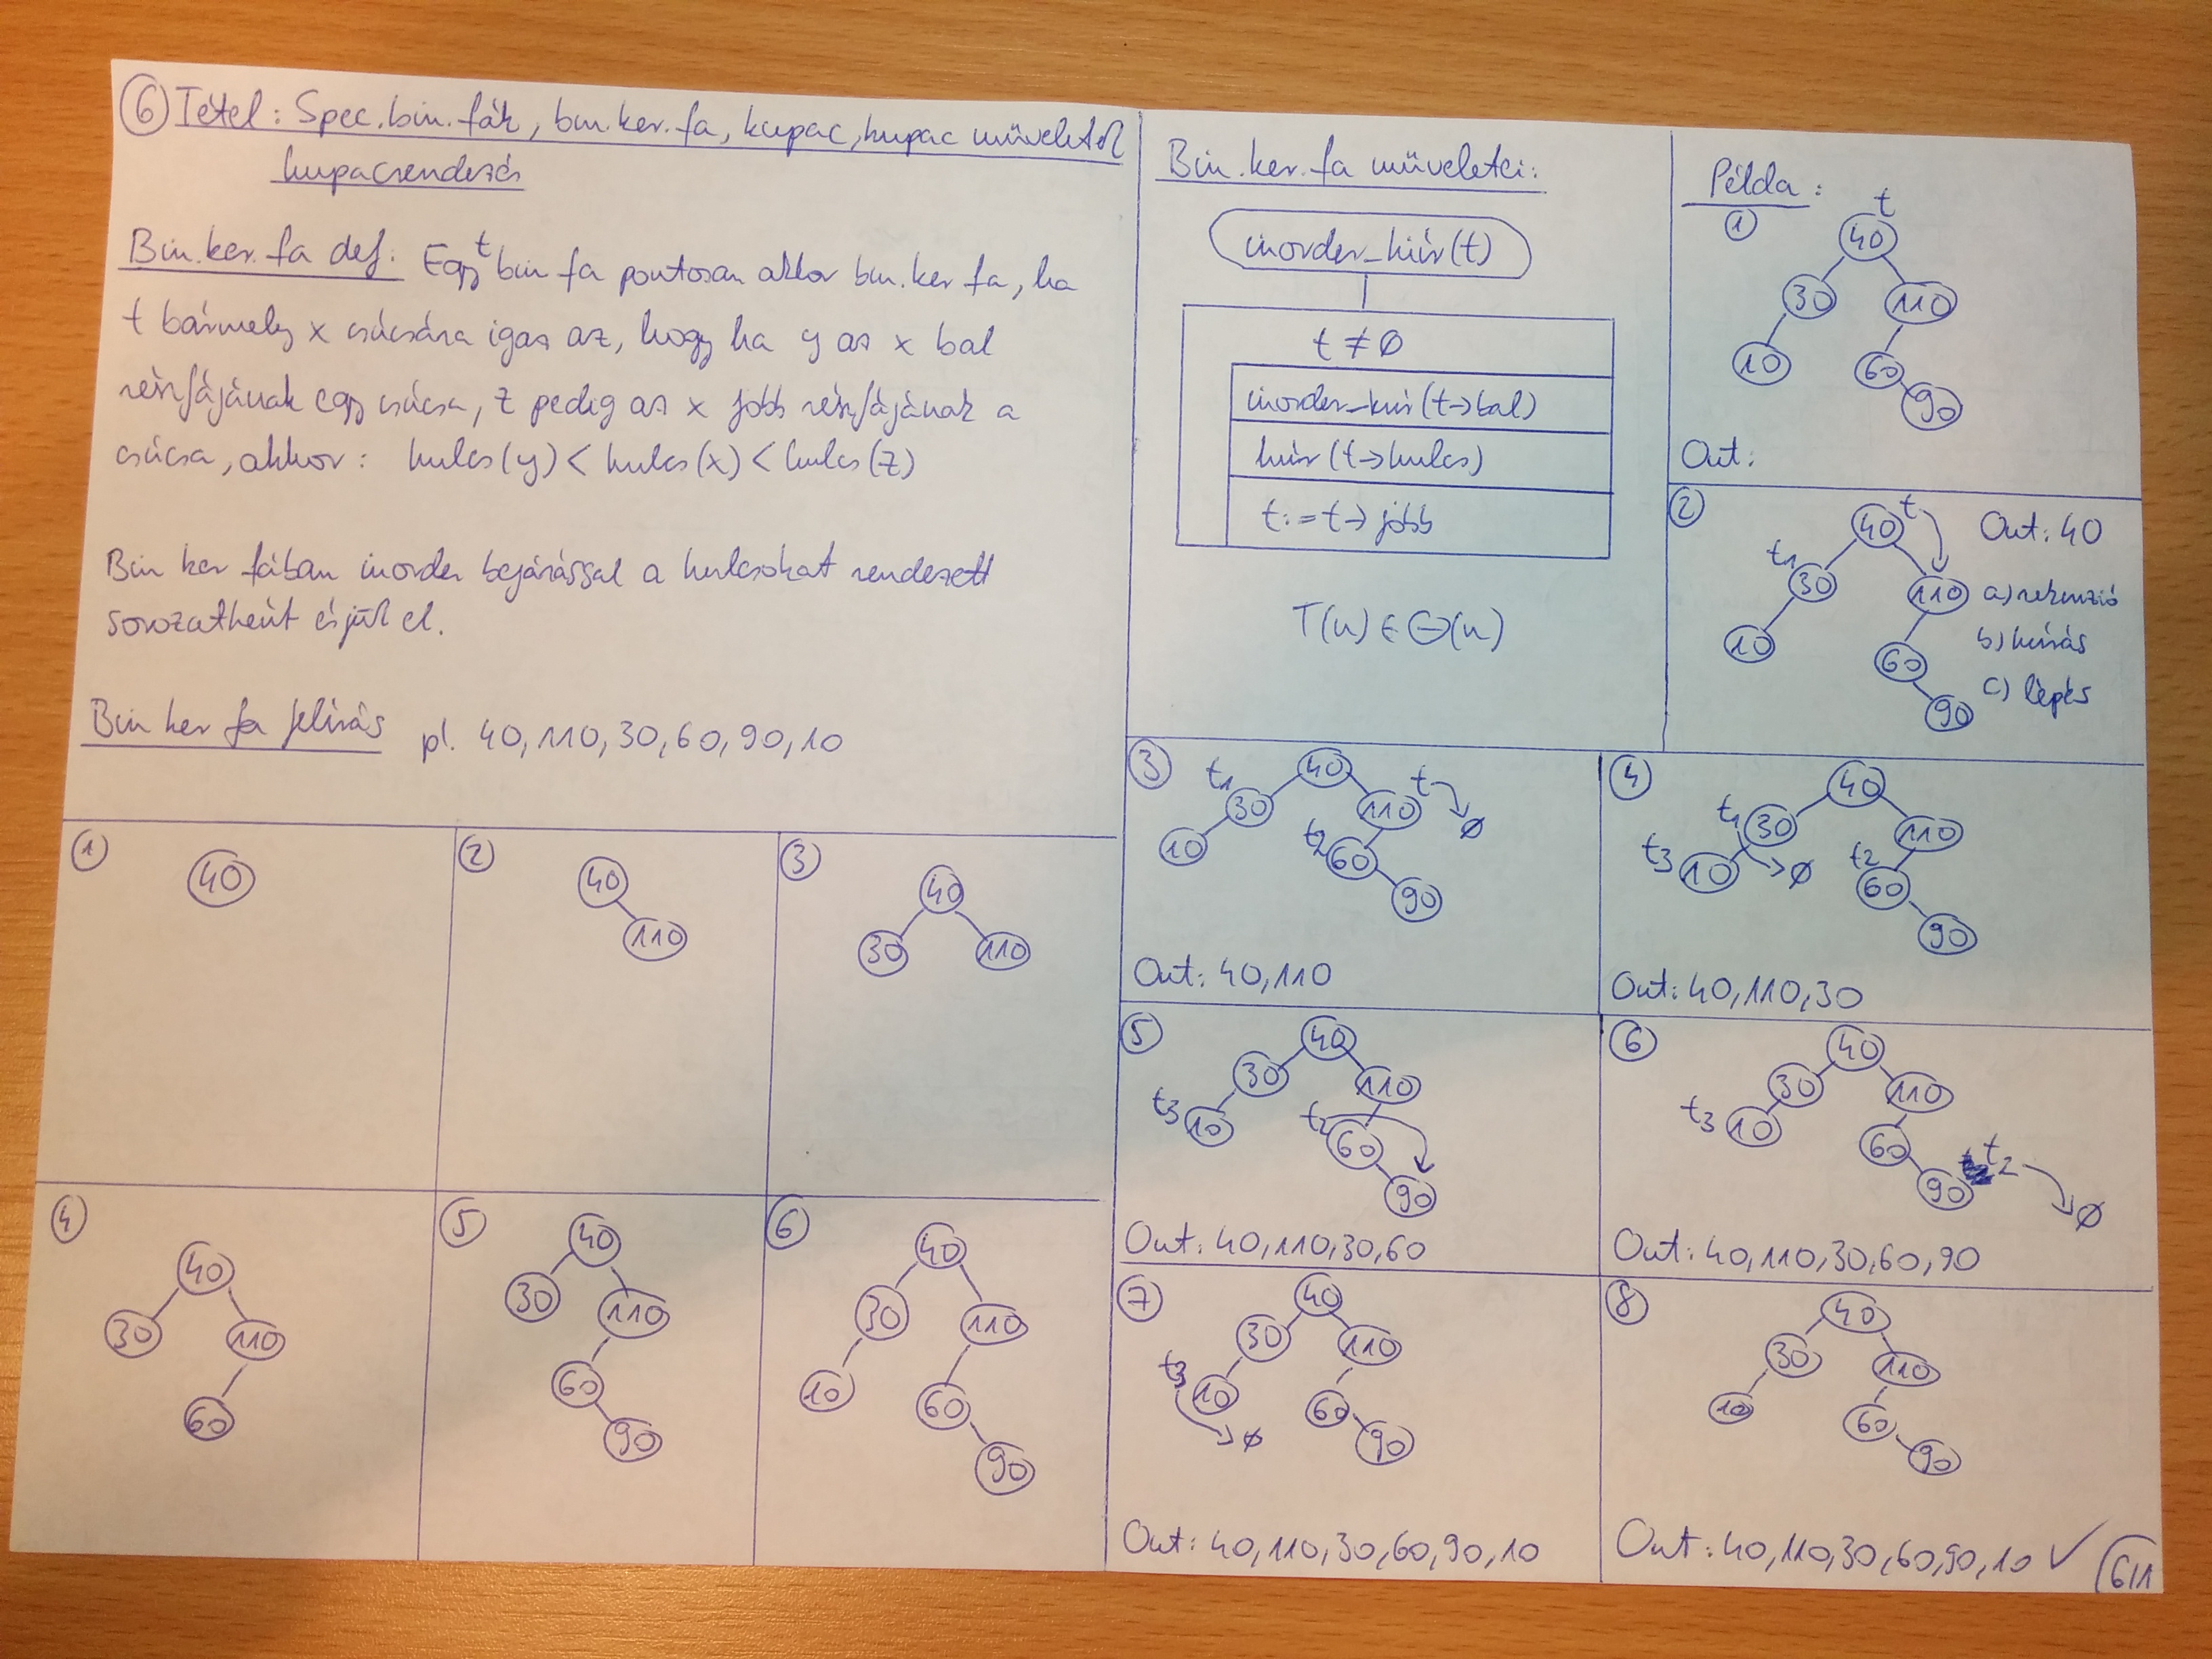 6 Tétel: Spec.bin.fák, bin.ker.fa, kupac, kupac műveletek
kupacrendezés
Bin.ker.fa def: Egy t bin fa pontosan akkor bin.ker fa, ha
t bármely x csúcsára igaz az, hogy ha y az x bal
részfájának egy csúcsa, z pedig az x jobb részfájának a
csúcsa, akkor: kulcs(y) < kulcs(x) < kulcs(z)
Bin ker fában inorder bejárással a kulcsokat rendezett
sorozatként érjük el.
Bin ker fa felírás pl. 40, 110, 30, 60, 90, 10
1
40
2
40
110
3
40
30 110
4
40
30 110
60
5
40
30 110
60
90
6
40
30 110
10 60
90
Bin.ker.fa műveletei:
inorder_kiír(t)
t ≠ ∅
inorder_kiír(t→bal)
kiír(t→kulcs)
t:=t→jobb
T(n) ∈ Θ(n)
Példa:
1
t
40
30 110
10 60
90
Out:
2
40 t Out: 40
t1
30 110 a) rekurzió
10 60 b) kiírás
90 c) lépés
3
40
t1 30 110 t ∅
10 t2 60
90
Out: 40, 110
4
40
t1 30 110
t3 10 ∅ t2 60
90
Out: 40, 110, 30
5
40
30 110
t3 10 t2 60
90
Out: 40, 110, 30, 60
6
40
30 110
t3 10 60
90 t2 ∅
Out: 40, 110, 30, 60, 90
7
40
30 110
t3 10 60
∅ 90
Out: 40, 110, 30, 60, 90, 10
8
40
30 110
10 60
90
Out: 40, 110, 30, 60, 90, 10 ✓
6/1